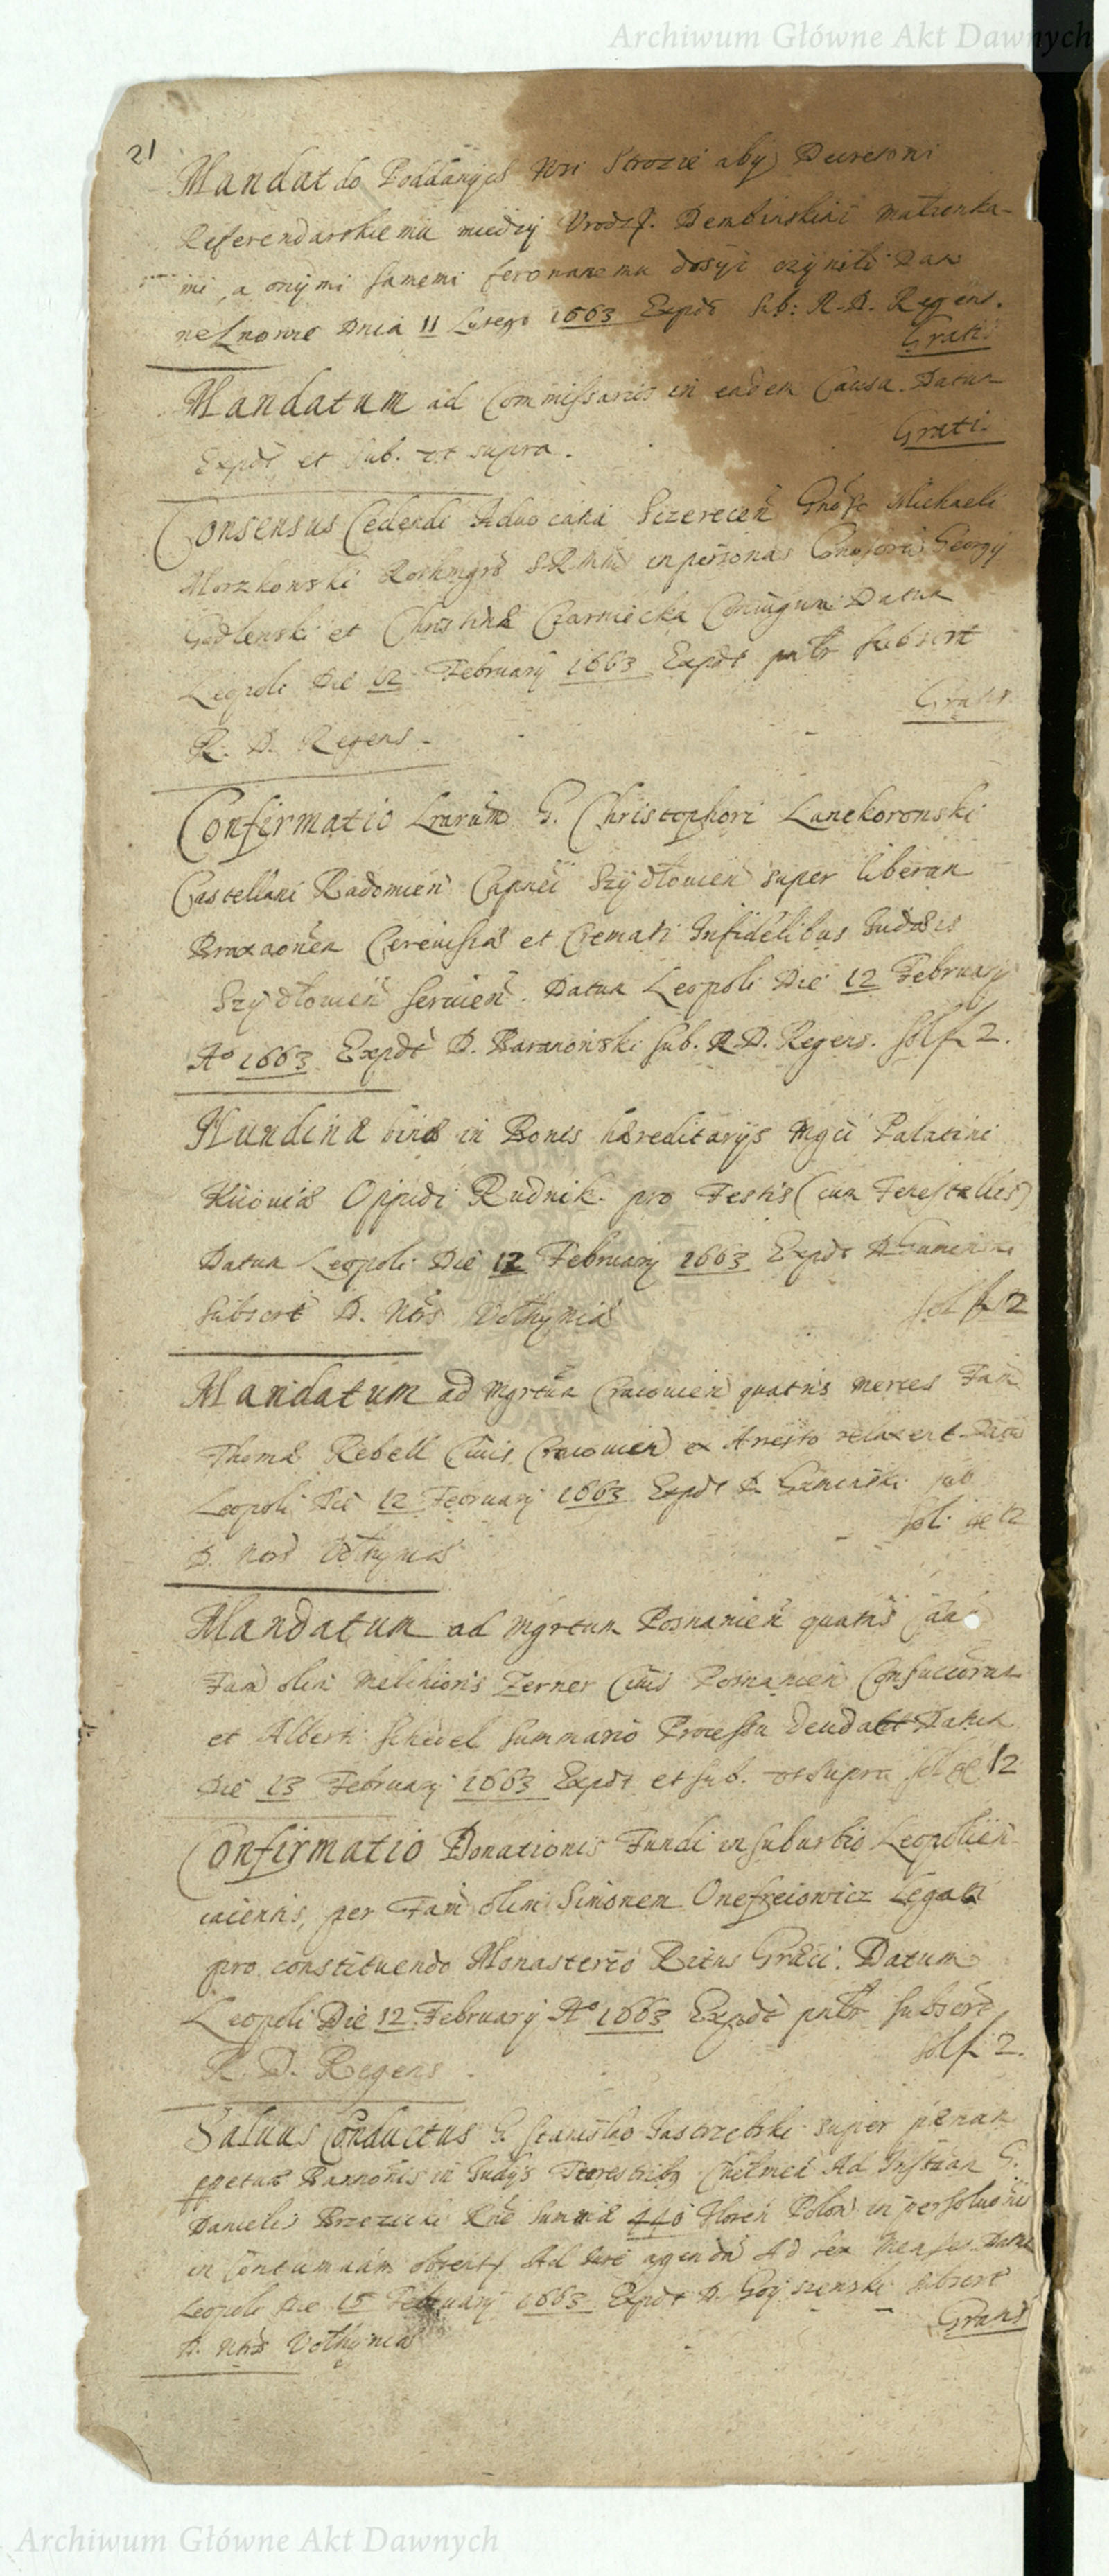 Archiwum Główne Akt Dawnych
21
Mandat do Poddanych Wsi Strozie aby Decretowi
Referendarskiemu między Urodz. Dembinskimi małzonka-
mi, a onymi samemi ferowanemu dosyć czynili Dan
we Lwowie Dnia 11 Lutego 1663 Expdt Sub: R. D. Regens.
Gratis
Mandatum ad Commissarios in eadem Causa Datum
Gratis
Expdt et sub. ut supra.
Consensus Cedendi Advocatia Szczerecen Gnoso Michaeli
Morzkowski Rothmgro SRMtis in personas Gnosorum Georgij
Godlenski et Christinæ Czarniecka Coniugum Datum
Leopoli Die 12 February 1663 Expdt pntr subscrt
Gratis
R. D. Regens
Confirmatio Lrarum G. Christophori Lanckoronski
Castellani Radomien Capnei Szydłowien super liberam
Braxaonem Cerevisiæ et Cremati Infidelibus Judæis
Szydłowien servien. Datum Leopoli Die 12 February
Ao 1663 Expdt D. Baranowski sub. R. D. Regens. sol f 2.
Nundinæ binæ in Bonis hæreditarijs Mgci Palatini
Kiioviæ Oppidi Rudnik pro Festis (cum
Datum Leopoli Die 12 February 1663 Expdt D.
Subscrt D. Ntrs Vołhyniæ sol f 2
Mandatum ad Mgrtum Cracovien quatns merces Fam
Thomæ Rebell Civis Cracovien ex Aresto relaxent Datum
Leopoli Die 12 February 1663 Expdt D. sub
sol. 12
D. Vołhyniæ
Mandatum ad Mgrtum Posnanien quatns
Fam olim Melchioris Zerner Civis Posnanien Consuccorum
et Alberti Schedel summario Processu Datum
Die 13 February 1663 Expdt et sub. ut supra sol 12
Confirmatio Donationis Fundi in suburbio Leopolien
iacentis, per Fam olim Simonem Onefreiowicz Legati
pro constituendo Monasterio Ritus Græci. Datum
Leopoli Die 12 February Ao 1663 Expdt pntr subscrt
sol f 2.
R. D. Regens
Salvus Conductus G. Stanislao Jastrzębski super pænam
ppetuæ Bannonis in Judijs Terrestribq Chełmen Ad Instiam G.
Danielis Brzezicki Rne Summæ 440 floren Polon in persoluoni
in contumaciam obtent Ad Jure agendum Ad sex Menses Datum
Leopoli Die 15 February 1663 Expdt D. subscrt
Gratis
D. Ntrs Vołhyniæ
Archiwum Główne Akt Dawnych